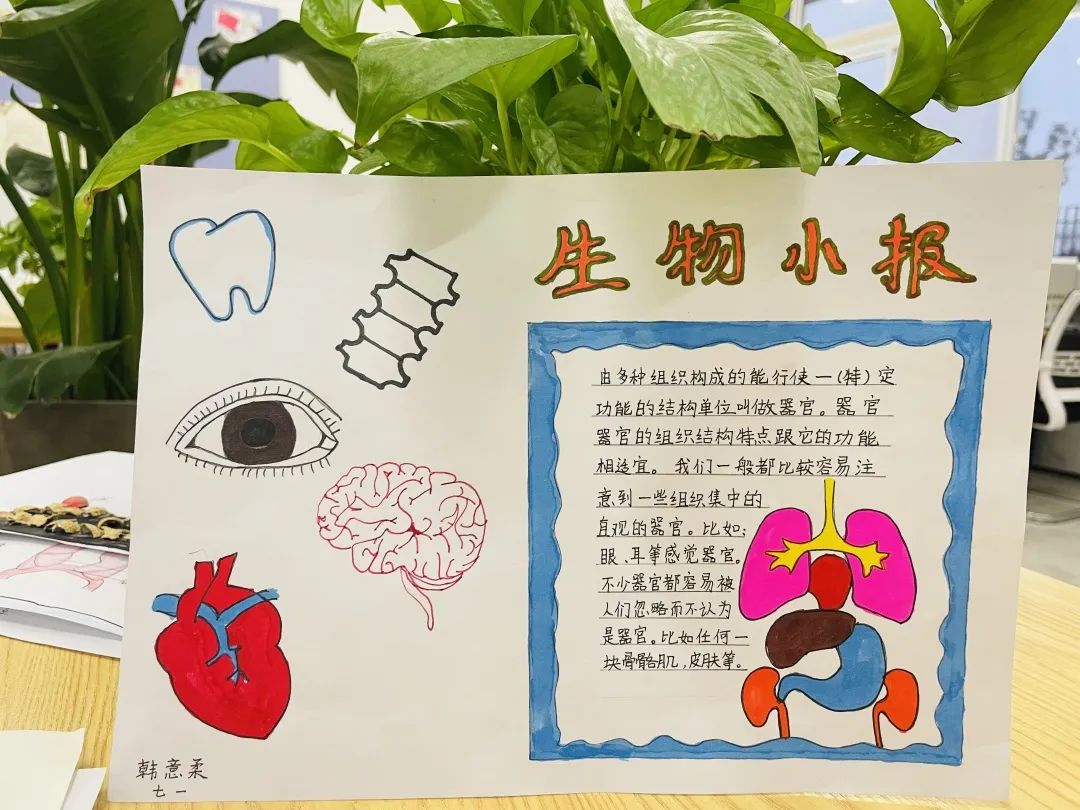 生物小报
由多种组织构成的能行使一(特)定
功能的结构单位叫做器官。器官
器官的组织结构特点跟它的功能
相适宜。我们一般都比较容易注
意到一些组织集中的
直观的器官。比如;
眼、耳等感觉器官。
不少器官都容易被
人们忽略而不认为
是器官。比如任何一
块骨骼肌,皮肤等。
韩意柔
七一